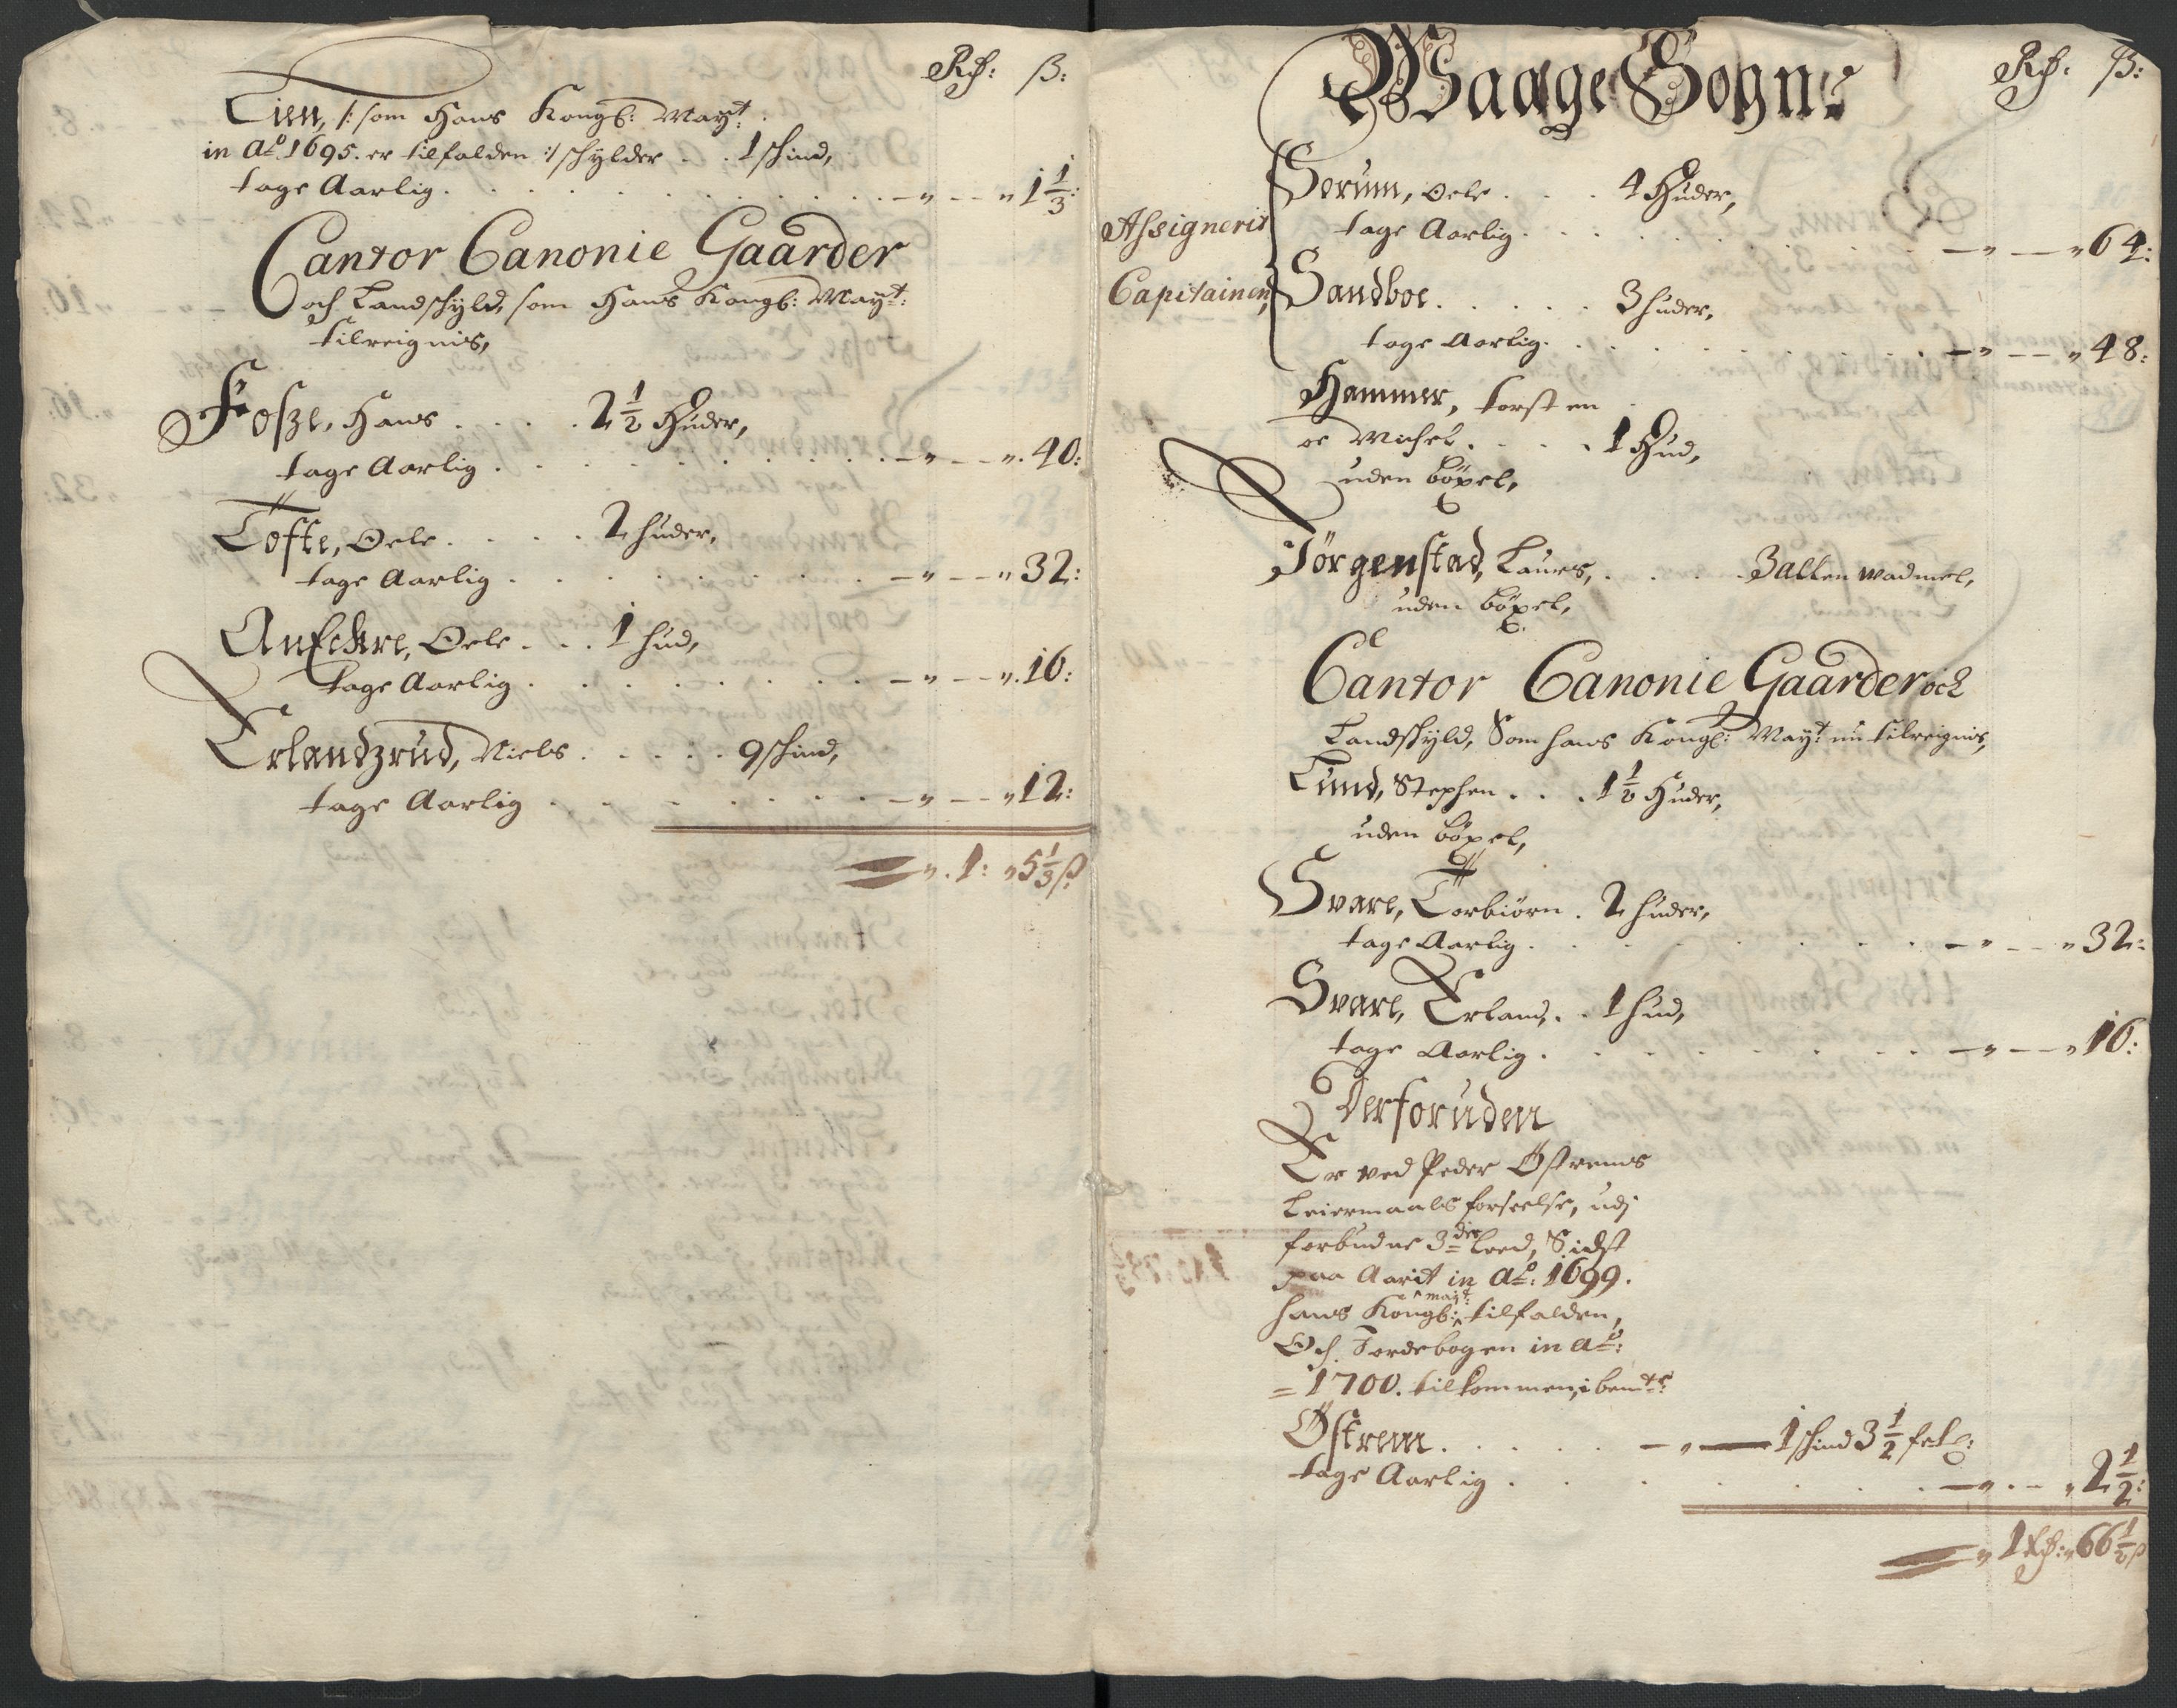 Rdr: ß:
Tien, /: som Hans Kongl: Mayt:
in Ao. 1695. er tilfalden :/ schylder . . 1 schind,
tage Aarlig . . . . — „ — „ 1 1/3:
Cantor Canonie Gaarder
och Landschyld, som Hans Kongl: Mayt:
tilreignis,
Foszе, Hans . . . . 2 1/2 Huder,
tage Aarlig . . . . — „ — „ 40:
Tofte, Oele . . . . 2 huder,
tage Aarlig . . . . — „ — „ 32:
Oele . . . 1 hud,
tage Aarlig . . . . — „ — „ 16:
Erlandzrud, Niels . . . . 9 schind,
tage Aarlig . . . . — „ — „ 12:
„ 1: „ 5 1/3 ß
Waage Sogn:
Rdr: ß:
Assignerit
Capitainen,
Serum, Oele . . . 4 Huder,
tage Aarlig . . . . — „ — „ 64:
Sandboe . . . . . 3 huder,
tage Aarlig . . . . — „ — „ 48:
Hammer, torsten
oc Michel . . . . 1 Hud,
uden böxel,
Jörgenstad, Laurs, . . . . 3 allen wadmel,
uden böxel,
Cantor Canonie Gaarder och
Landschyld, Som hans Kongl: Mayt: nu tilreignis,
Lund, Stephen . . . 1 1/2 Huder,
uden böxel,
Svare, Torbiörn . 2 huder,
tage Aarlig . . . . — „ — „ 32:
Svare, Erland, . . 1 hud,
tage Aarlig . . . . — „ — „ 16:
Derforuden
Er ved Peder Östrems
Leiermaals forseelse, udj
forbudne 3die Leed, Sidst
paa Aarit in Ao: 1699.
hans Kongl: mayt: tilfalden,
Och Jordebogen in Ao:
= 1700. tilkommen, i bemte:
Östrem . . . . . — „ — 1 schind 3 1/2
tage Aarlig . . . . — „ — „ 2 1/2:
„ 1 Rdr: „ 66 1/2 ß